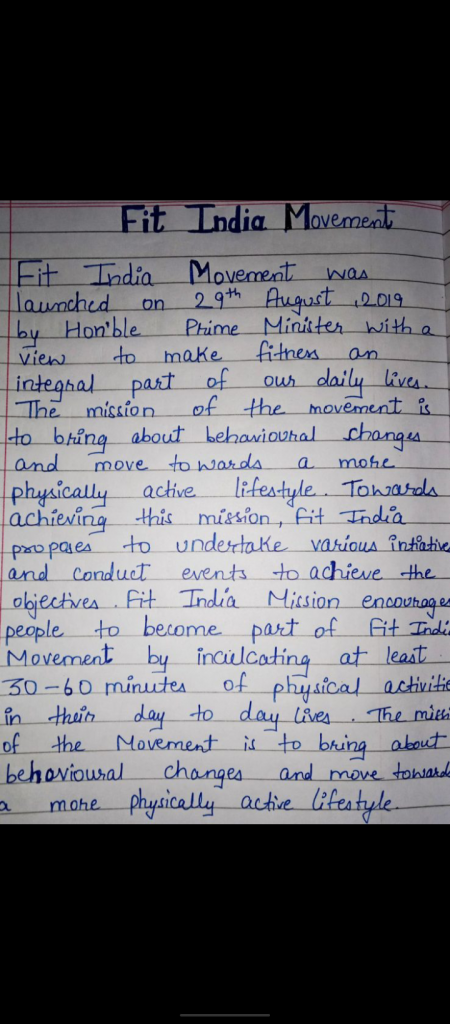 Fit India Movement
Fit India Movement was
launched on 29th August, 2019
by Hon'ble Prime Minister with a
view to make fitness an
integral part of our daily lives.
The mission of the movement is
to bring about behavioural changes
and move towards a more
physically active lifestyle. Towards
achieving this mission, Fit India
proposes to undertake various intiative
and conduct events to achieve the
objectives. Fit India Mission encourages
people to become part of Fit Indi
Movement by inculcating at least
30-60 minutes of physical activitie
in their day to day lives. The missi
of the Movement is to bring about
behavioural changes and move toward
a more physically active lifestyle.